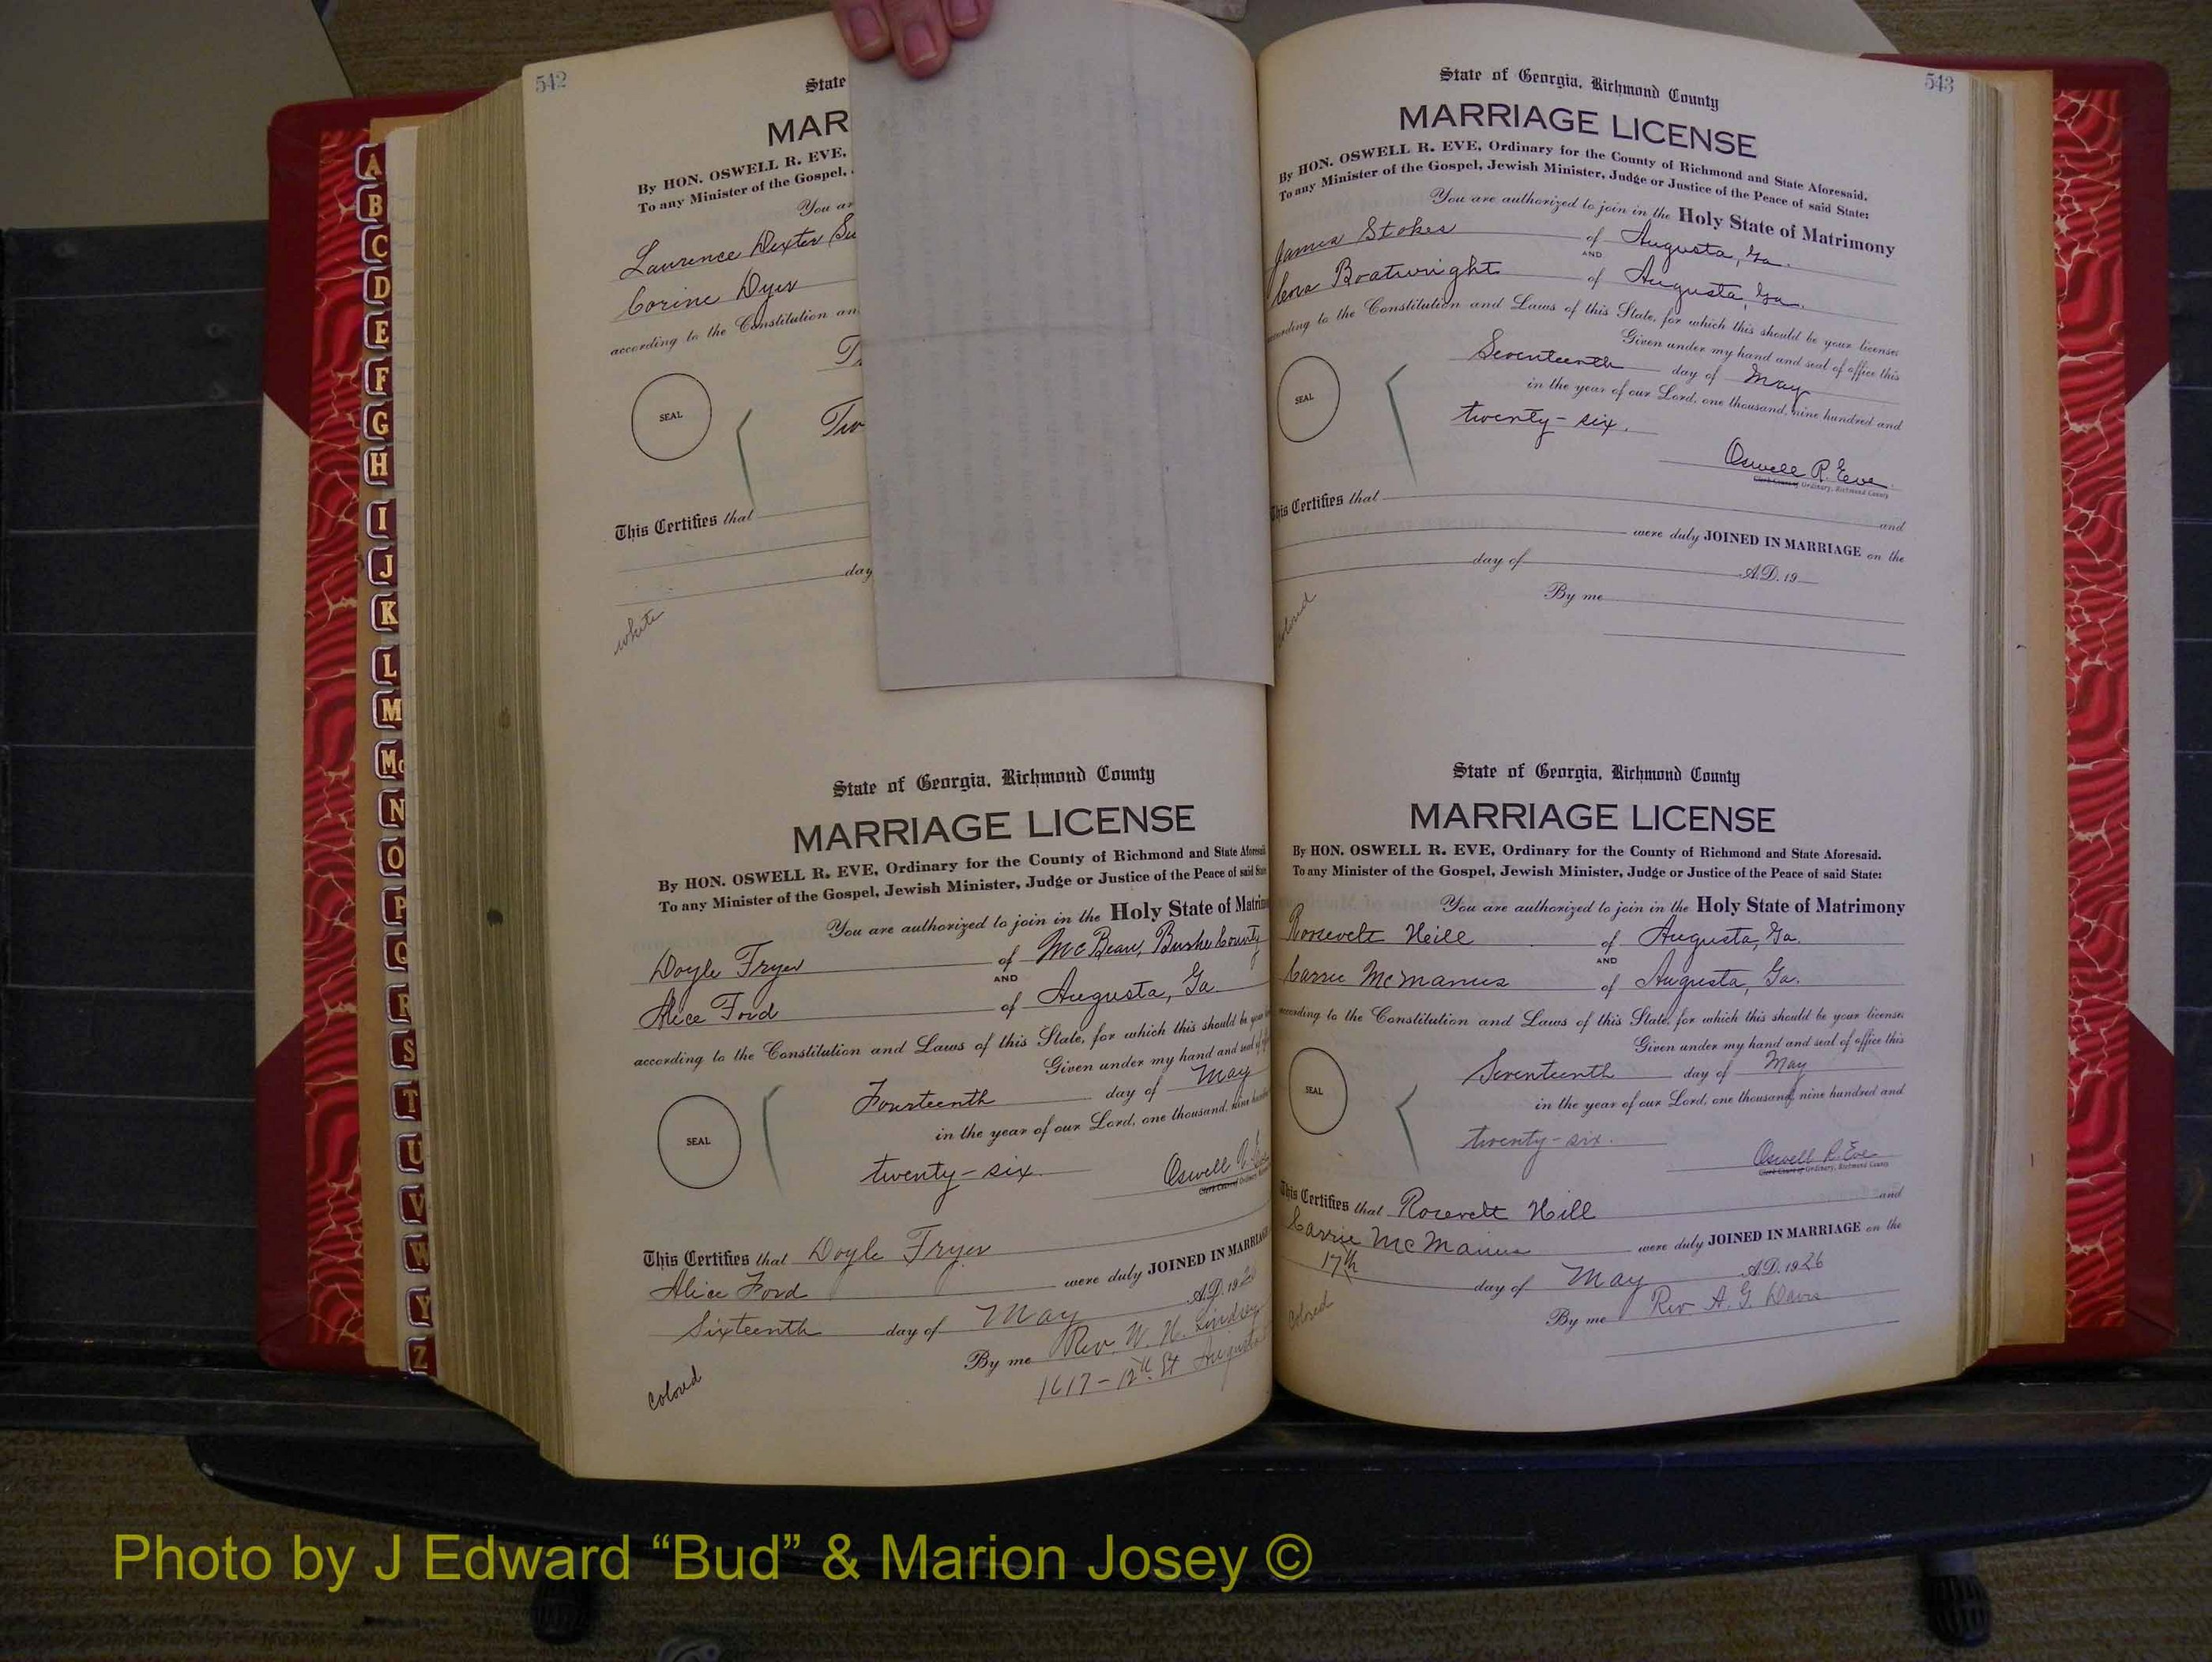 542
State
MAR
By HON. OSWELL R. EVE,
To any Minister of the Gospel,
You
Laurence Dexter
Corine Dyer
according to the Constitution an
SEAL
This Certifies that
day
white
State of Georgia, Richmond County
MARRIAGE LICENSE
By HON. OSWELL R. EVE, Ordinary for the County of Richmond and State
To any Minister of the Gospel, Jewish Minister, Judge or Justice of the Peace of said
You are authorized to join in the Holy State of Matrim
Doyle Fryer of McBean, Burke County
AND
Alice Ford of Augusta, Ga
according to the Constitution and Laws of this State, for which this should be
Given under my hand and seal of
SEAL
Fourteenth day of May
in the year of our Lord, one thousand, nine
twenty-six.
Oswell R.
This Certifies that Doyle Fryer
Alice Ford were duly JOINED IN MARRIAGE
Sixteenth day of May A.D. 19
By me Rev. W. H. Lindsey
1617 - 12th St Augusta
Colored
543
State of Georgia, Richmond County
MARRIAGE LICENSE
By HON. OSWELL R. EVE, Ordinary for the County of Richmond and State Aforesaid.
To any Minister of the Gospel, Jewish Minister, Judge or Justice of the Peace of said State:
You are authorized to join in the Holy State of Matrimony
James Stokes of Augusta, Ga.
AND
Boatwright of Augusta, Ga.
according to the Constitution and Laws of this State, for which this should be your licenses
Given under my hand and seal of office this
SEAL
Seventeenth day of May
in the year of our Lord, one thousand, nine hundred and
twenty-six.
Oswell R. Eve
Clerk Court of Ordinary, Richmond County
This Certifies that
and
were duly JOINED IN MARRIAGE on the
day of A.D. 19
By me
colored
State of Georgia, Richmond County
MARRIAGE LICENSE
By HON. OSWELL R. EVE, Ordinary for the County of Richmond and State Aforesaid.
To any Minister of the Gospel, Jewish Minister, Judge or Justice of the Peace of said State:
You are authorized to join in the Holy State of Matrimony
Roosevelt Heill of Augusta, Ga.
AND
Carrie McManus of Augusta, Ga.
according to the Constitution and Laws of this State, for which this should be your licenses
Given under my hand and seal of office this
SEAL
Seventeenth day of May
in the year of our Lord, one thousand, nine hundred and
twenty-six.
Oswell R. Eve
Clerk Court of Ordinary, Richmond County
This Certifies that Rosevelt Hill and
Carrie McManus were duly JOINED IN MARRIAGE on the
17th day of May A.D. 1926
By me Rev A. G. Davis
Colored
A
B
C
D
E
F
G
H
I
J
K
L
M
Mc
N
O
P
Q
R
S
T
U
V
W
Y
Z
Photo by J Edward “Bud” & Marion Josey ©